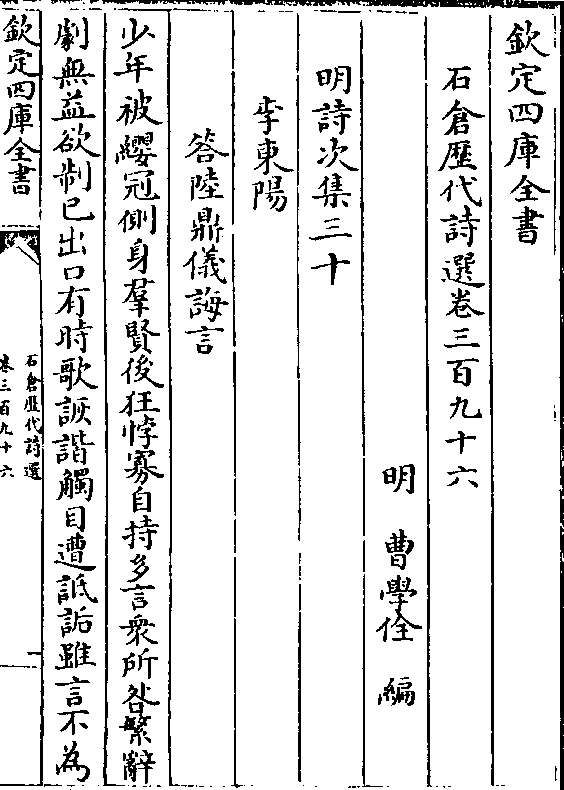 欽定四庫全書
石倉歴代詩選卷三百九十六
明 曹學佺 編
明詩次集三十
李東陽
答陸鼎儀誨言
少年被纓冠側身羣賢後狂悖寡自持多言衆所咎繁辭
劇無益欲制已出口有時歌詼諧觸目遭詆詬雖言不為
欽定四庫全書
石倉歴代詩選
卷三百九十六
一